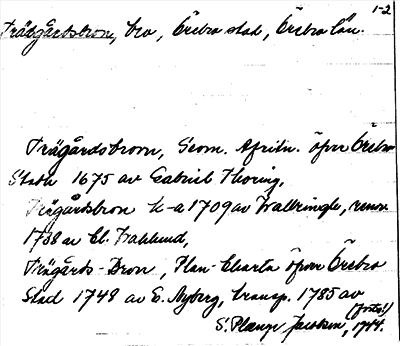 1-2
Trädgårdsbron, bro, Örebro stad, Örebro län.
Trägårdsbrom, Geom. Afritn. öfver Örebro
Stadh 1675 av Gabriel Thoring,
Trägårdsbron k-a 1709 av Wallringh, renov.
1738 av El.
Trägårds-Bron, Plan-Charta öfver Örebro
Stad 1748 av E. Nyberg, transp. 1785 av
(forts!)
S. Jacobson, 1944.